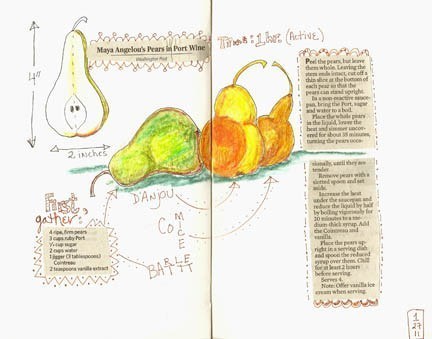 Maya Angelou's Pears in Port Wine
Washington Post
Time: 1 hr (ACTIVE)
4"
2 inches
First,
gather:
4 ripe, firm pears
3 cups ruby Port
½ cup sugar
2 cups water
1 jigger (3 tablespoons)
Cointreau
2 teaspoons vanilla extract
D'ANJOU
COMICE
BARTLETT
Peel the pears, but leave
them whole. Leaving the
stem ends intact, cut off a
thin slice at the bottom of
each pear so that the
pears can stand upright.
In a non-reactive sauce-
pan, bring the Port, sugar
and water to a boil.
Place the whole pears
in the liquid, lower the
heat and simmer uncov-
ered for about 35 minutes,
turning the pears occa-
sionally, until they are
tender.
Remove pears with a
slotted spoon and set
aside.
Increase the heat
under the saucepan and
reduce the liquid by half
by boiling vigorously for
20 minutes to a me-
dium-thick syrup. Add
the Cointreau and
vanilla.
Place the pears up-
right in a serving dish
and spoon the reduced
syrup over them. Chill
for at least 2 hours
before serving.
Serves 4.
Note: Offer vanilla ice
cream when serving.
1
27
11